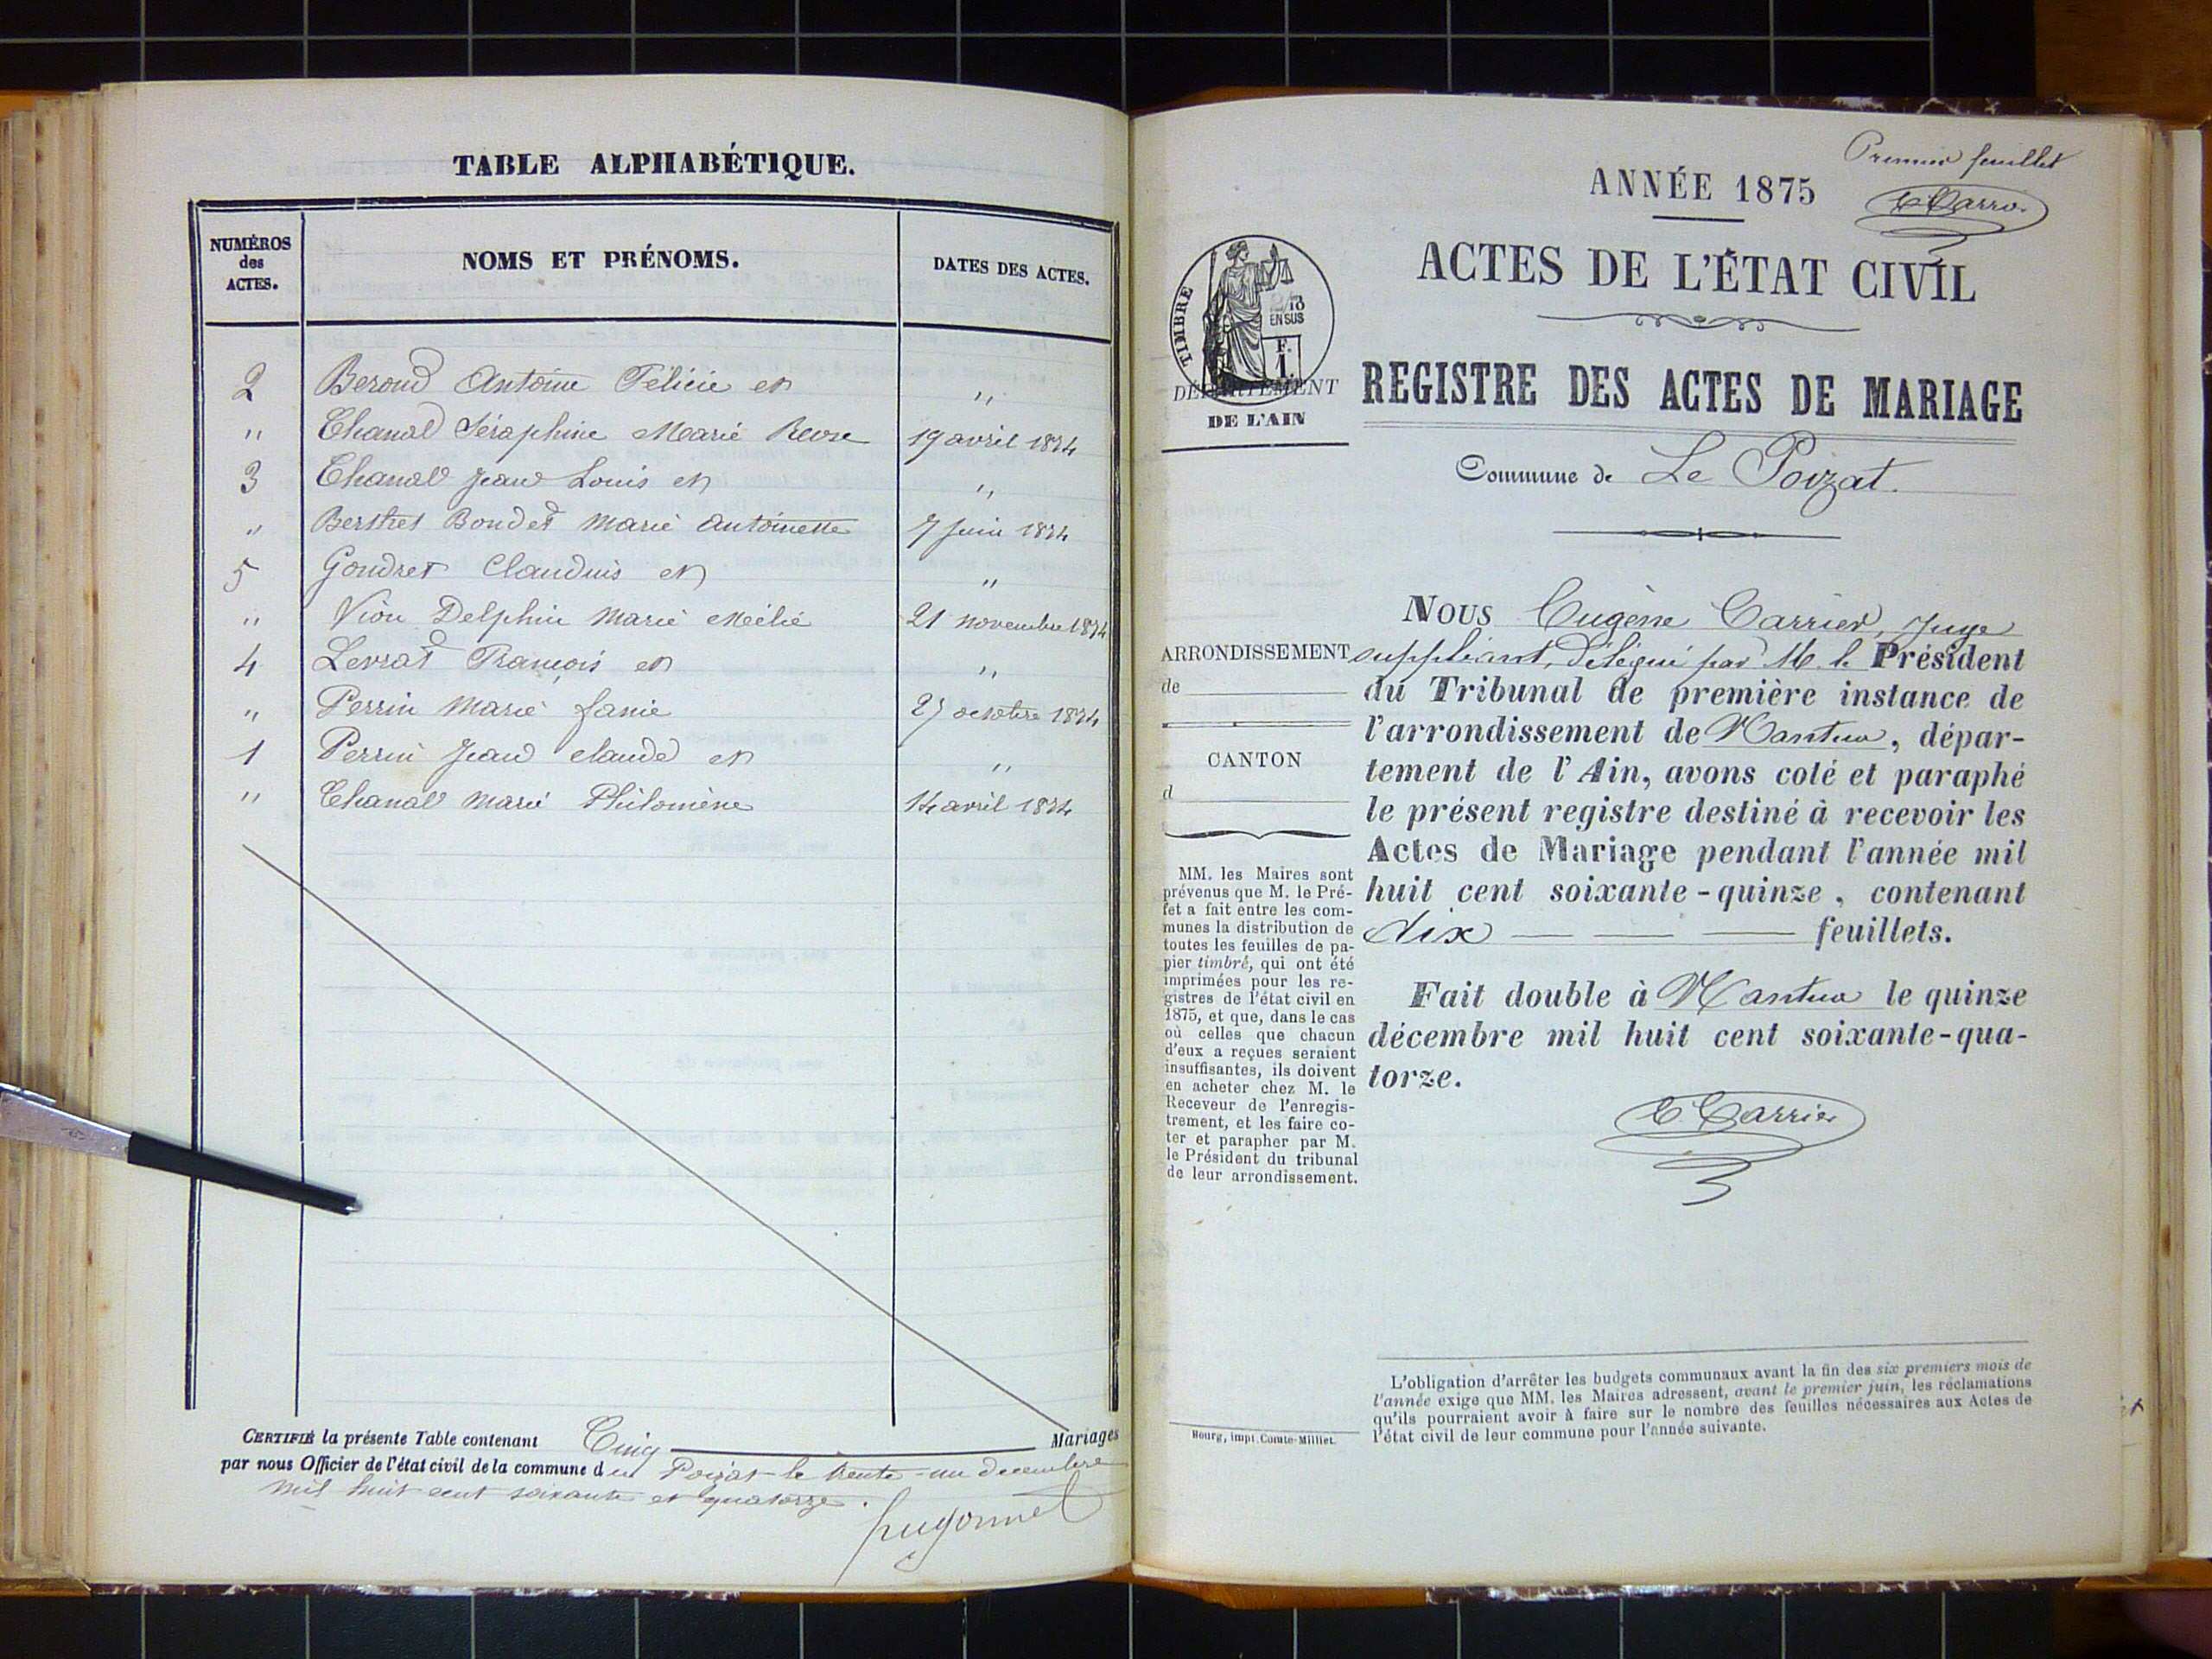 TABLE ALPHABÉTIQUE.
NUMÉROS
des
ACTES.
NOMS ET PRÉNOMS.
DATES DES ACTES.
2 Beroud Antoine Félicie et ,,
,, Chanal Séraphine Marie Rose 19 avril 1874
3 Chanal Jean Louis et ,,
,, Berthet Bondet Marie Antoinette 7 Juin 1874
5 Goudret Claudius et ,,
,, Vion Delphin Marie Mélié 21 novembre 1874
4 Levrat François et ,,
,, Perrin Marie fanie 27 octobre 1874
1 Perrin Jean Claude et ,,
,, Chanal Marie Philomène 14 avril 1874
CERTIFIÉ la présente Table contenant Cinq Mariages
par nous Officier de l'état civil de la commune du Poizat le trente-un decembre
mil huit cent soixante et quatorze.
hugonnet
Premier feuillet
ANNÉE 1875
ACTES DE L'ÉTAT CIVIL
TIMBRE
2/10
EN SUS
F.
1.
DÉPARTEMENT
DE L'AIN
REGISTRE DES ACTES DE MARIAGE
Commune de Le Poizat.
NOUS Eugène Carrier, Juge
suppléant, délégué par M. le Président
du Tribunal de première instance de
l'arrondissement de Nantua, dépar-
tement de l'Ain, avons coté et paraphé
le présent registre destiné à recevoir les
Actes de Mariage pendant l'année mil
huit cent soixante-quinze, contenant
dix — — — feuillets.
Fait double à Nantua le quinze
décembre mil huit cent soixante-qua-
torze.
E. Carrier
ARRONDISSEMENT
de
CANTON
d
MM. les Maires sont
prévenus que M. le Pré-
fet a fait entre les com-
munes la distribution de
toutes les feuilles de pa-
pier timbré, qui ont été
imprimées pour les re-
gistres de l'état civil en
1875, et que, dans le cas
où celles que chacun
d'eux a reçues seraient
insuffisantes, ils doivent
en acheter chez M. le
Receveur de l'enregis-
trement, et les faire co-
ter et parapher par M.
le Président du tribunal
de leur arrondissement.
Bourg, impr. Comte-Milliet.
L'obligation d'arrêter les budgets communaux avant la fin des six premiers mois de
l'année exige que MM. les Maires adressent, avant le premier juin, les réclamations
qu'ils pourraient avoir à faire sur le nombre des feuilles nécessaires aux Actes de
l'état civil de leur commune pour l'année suivante.